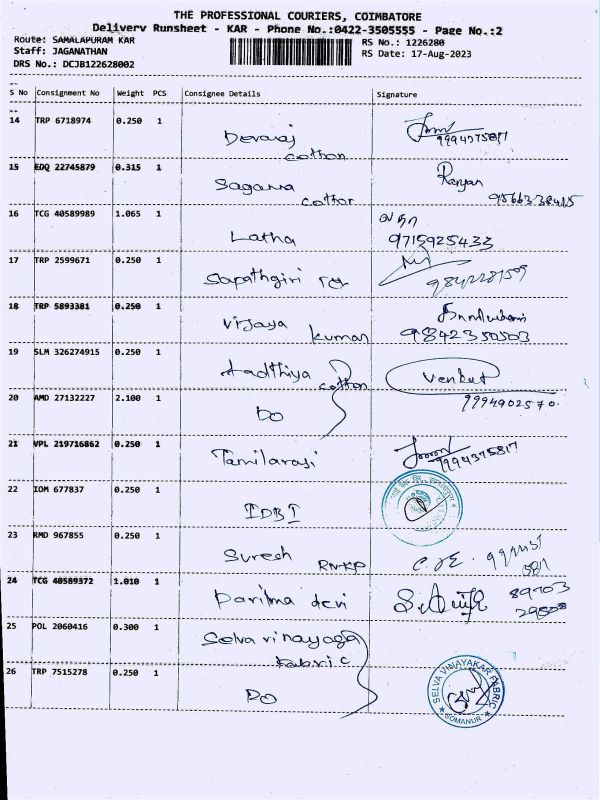 THE PROFESSIONAL COURIERS, COIMBATORE
Delivery Runsheet - KAR - Phone No.:0422-3505555 - Page No.:2
Route: SAMALAPURAM KAR
RS No.: 1226280
Staff: JAGANATHAN
RS Date: 17-Aug-2023
DRS No.: DCJB122628002
S No Consignment No Weight PCS Consignee Details Signature
14 TRP 6718974 0.250 1
Devaraj
cotton
9994375817
15 EDQ 22745879 0.315 1
Sagana
cotton
Ranjan
16 TCG 40589989 1.065 1
Latha
லதா
9715925433
17 TRP 2599671 0.250 1
Sapathgiri
18 TRP 5893381 0.250 1
Vijaya
kumar
9842350503
19 SLM 326274915 0.250 1
Aadthiya
cotton
Venkat
20 AMD 27132227 2.100 1
DO
9994902570
21 VPL 219716862 0.250 1
Tamilarasi
9994375817
22 IOM 677837 0.250 1
IDBI
23 RMD 967855 0.250 1
Suresh
RN-KP
24 TCG 40589372 1.010 1
Parilma devi
89703
25 POL 2060416 0.300 1
Selva vinayaga
fabric
26 TRP 7515278 0.250 1
DO
SELVA VINAYAKAR FABRIC
SOMANUR